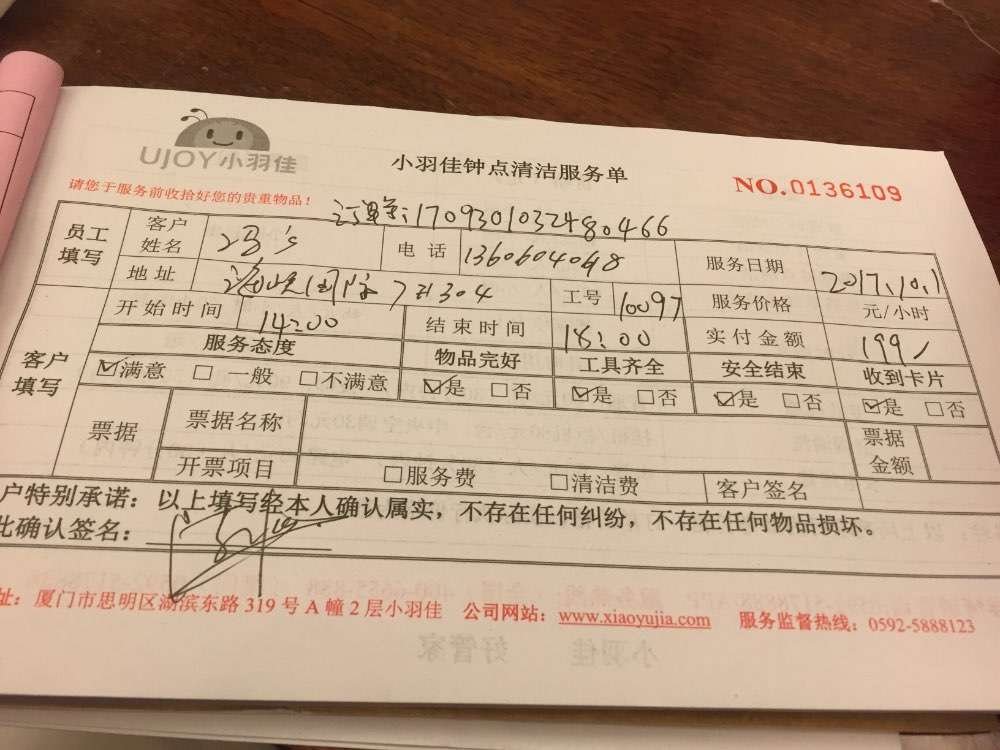 UJOY小羽佳
小羽佳钟点清洁服务单
NO.0136109
请您于服务前收拾好您的贵重物品！
订单号：1709301032480466
员工填写 客户姓名 冯's 电话 服务日期 2017.10.1
地址 304 工号 10097 服务价格 元/小时
客户填写 开始时间 14:00 结束时间 18:00 实付金额 199
服务态度 物品完好 工具齐全 安全结束 收到卡片
☑满意 □一般 □不满意 ☑是 □否 ☑是 □否 ☑是 □否 ☑是 □否
票据 票据名称 票据金额
开票项目 □服务费 □清洁费 客户签名
户特别承诺：以上填写经本人确认属实，不存在任何纠纷，不存在任何物品损坏。
此确认签名：
址：厦门市思明区湖滨东路 319 号 A 幢 2 层小羽佳 公司网站：www.xiaoyujia.com 服务监督热线：0592-5888123